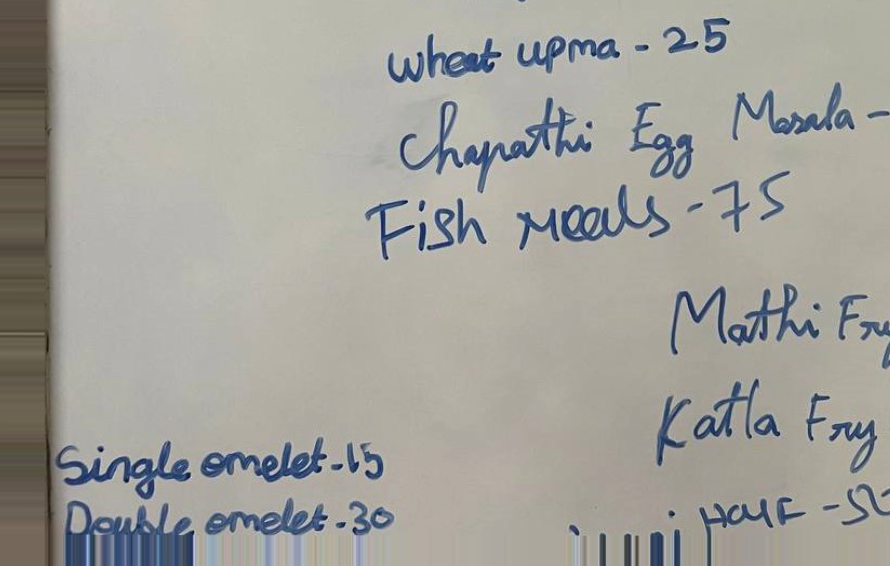 wheat upma - 25
Chapathi Egg Masala -
Fish meals - 75
Mathi Fry
Katla Fry
Single omelet - 15
Double omelet - 30
HalF -